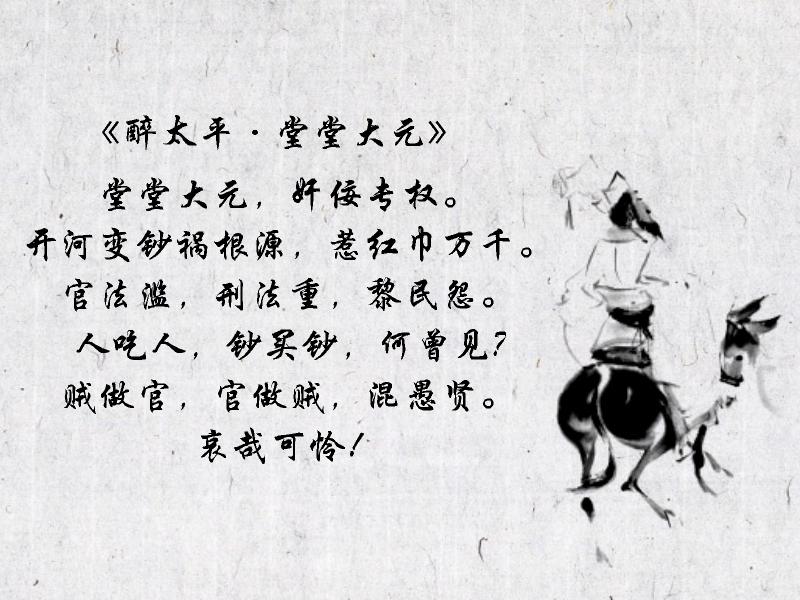 《醉太平·堂堂大元》
堂堂大元，奸佞专权。
开河变钞祸根源，惹红巾万千。
官法滥，刑法重，黎民怨。
人吃人，钞买钞，何曾见？
贼做官，官做贼，混愚贤。
哀哉可怜！